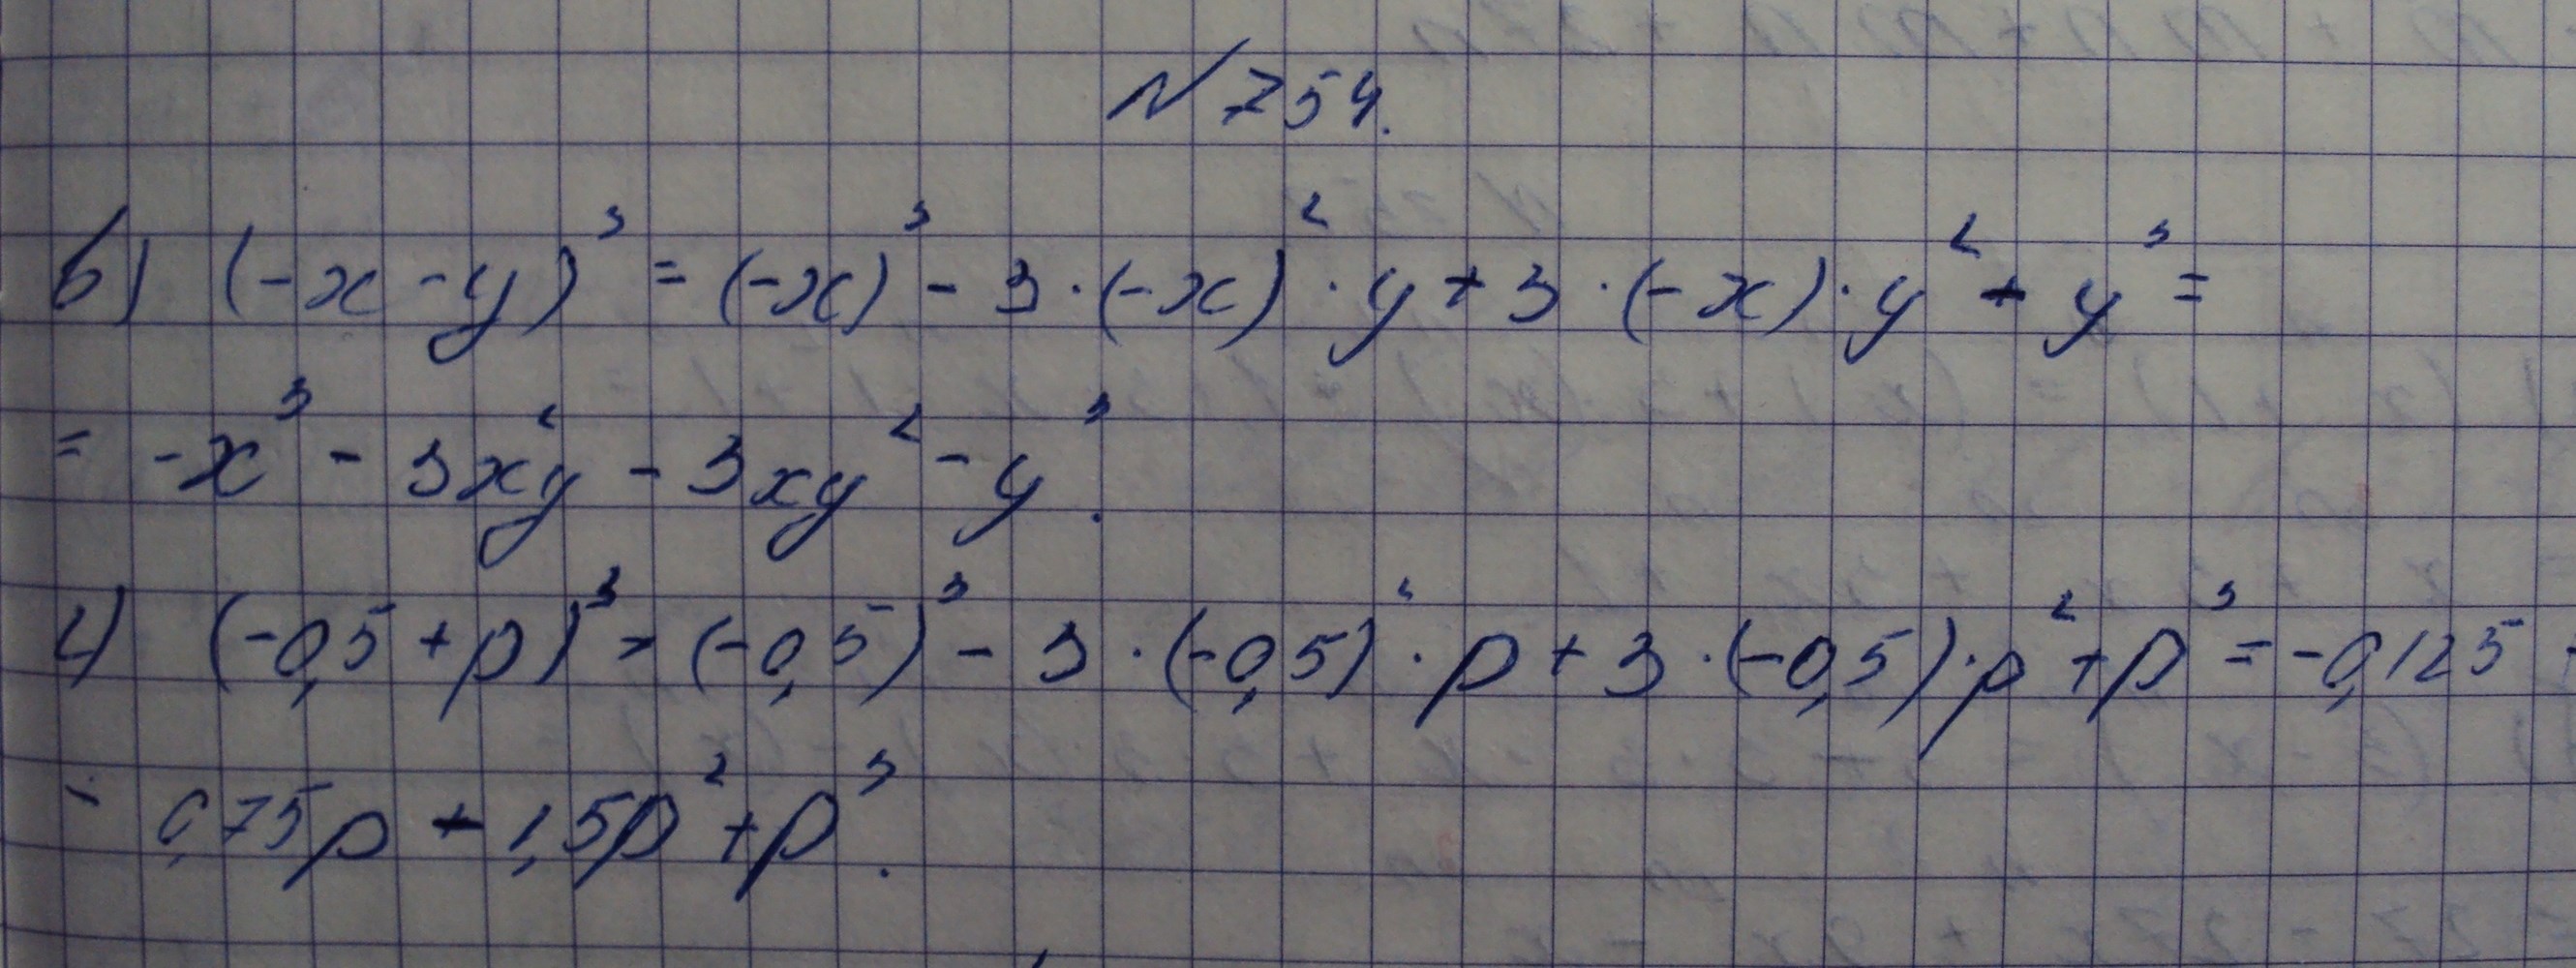 N 754.
в) (-x - y)³ = (-x)³ - 3 · (-x)² · y + 3 · (-x) · y² - y³ =
= -x³ - 3x²y - 3xy² - y³.
г) (-0,5 + p)³ = (-0,5)³ - 3 · (-0,5)² · p + 3 · (-0,5) · p² + p³ = -0,125 -
- 0,75p - 1,5p² + p³.